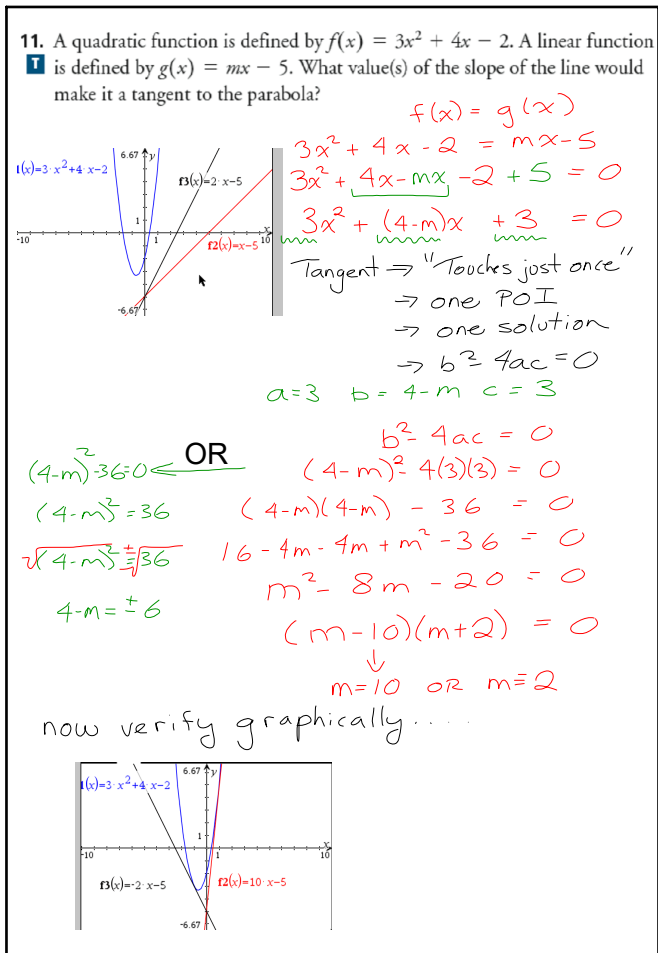 11. A quadratic function is defined by f(x) = 3x² + 4x − 2. A linear function
T is defined by g(x) = mx − 5. What value(s) of the slope of the line would
make it a tangent to the parabola?
f(x) = g(x)
3x² + 4x - 2 = mx - 5
3x² + 4x - mx - 2 + 5 = 0
3x² + (4-m)x + 3 = 0
1(x)=3·x²+4·x−2
6.67 y
f3(x)=2·x−5
1
-10
1
x
10
f2(x)=x−5
-6.67
Tangent → "Touches just once"
→ one POI
→ one solution
→ b² - 4ac = 0
a=3 b = 4-m c = 3
b² - 4ac = 0
(4-m)² - 4(3)(3) = 0
(4-m)(4-m) - 36 = 0
16 - 4m - 4m + m² - 36 = 0
m² - 8m - 20 = 0
(m-10)(m+2) = 0
↓
m=10 OR m=-2
OR
(4-m)²-36=0
(4-m)² = 36
√(4-m)² = ±√36
4-m = ±6
now verify graphically....
1(x)=3·x²+4·x−2
6.67 y
1
-10
1
x
10
f3(x)=-2·x−5
f2(x)=10·x−5
-6.67